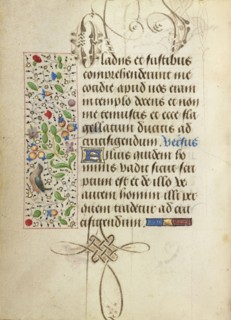 Gladiis et fustibus
comprehendere me
cotidie apud vos eram
in templo docens et non
me tenuistis et ecce fla
gellatum ducitis ad
crucifigendum. Versus
Filius quidem ho
minis vadit sicut scri
ptum est et de illo ve
autem homini illi per
quem tradetur ad cru
cifigendum.